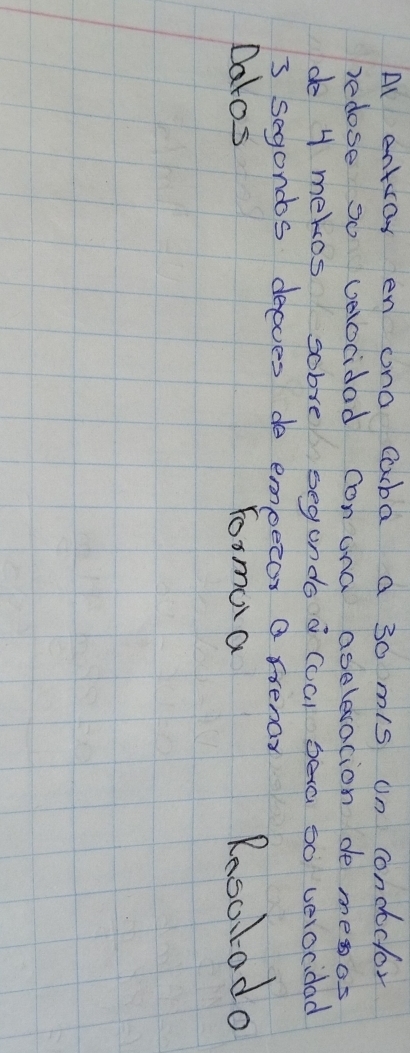 Al entrar en una curba a 30 m/s un condoctor
redose so velocidad con una aselaracion de menos
de 4 metros sobre segundo ¿ Cual sera so velocidad
3 segondos depues de empezar a frenar
Datos Formula Rasoltado